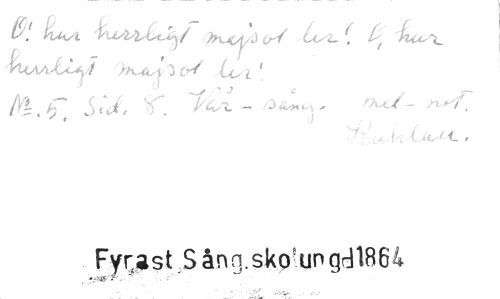 O! hur herrligt majsol ler! O, hur
herrligt majsol ler!
No. 5. Sid. 8. Vår-sång. mel-not.
Kuhlau.
Fyrast Sång.skolungd1864